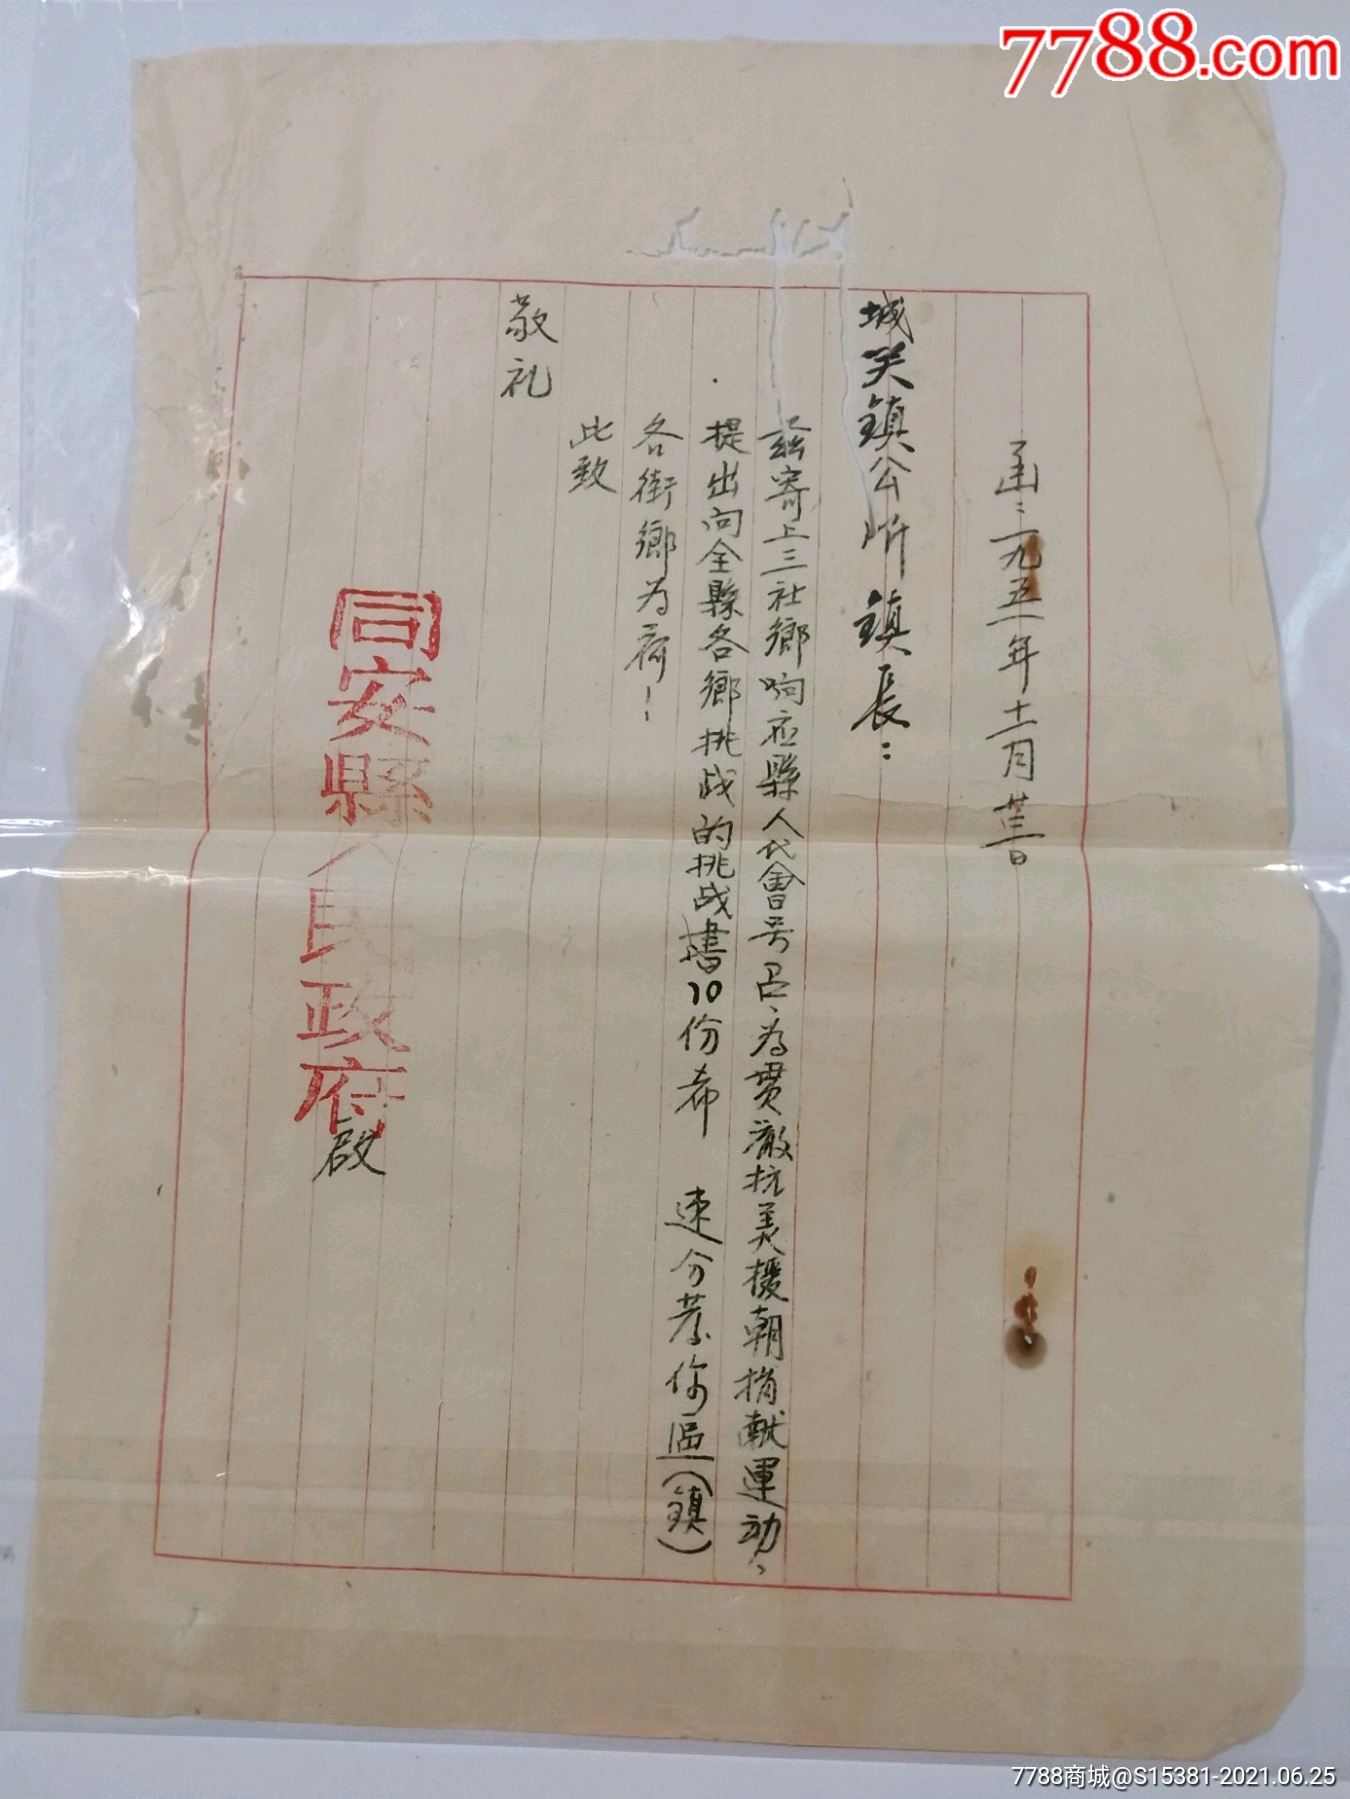 7788.com
函：一九五一年十一月廿三日
城关鎮公所鎮長：
兹寄上三社鄉响应縣人代會号召、为贯澈抗美援朝捐献運动、
提出向全縣各鄉挑战的挑战書10份希 速分发你區(鎮)
各街鄉为荷！
此致
敬礼
同安縣人民政府啟
7788商城@S15381-2021.06.25